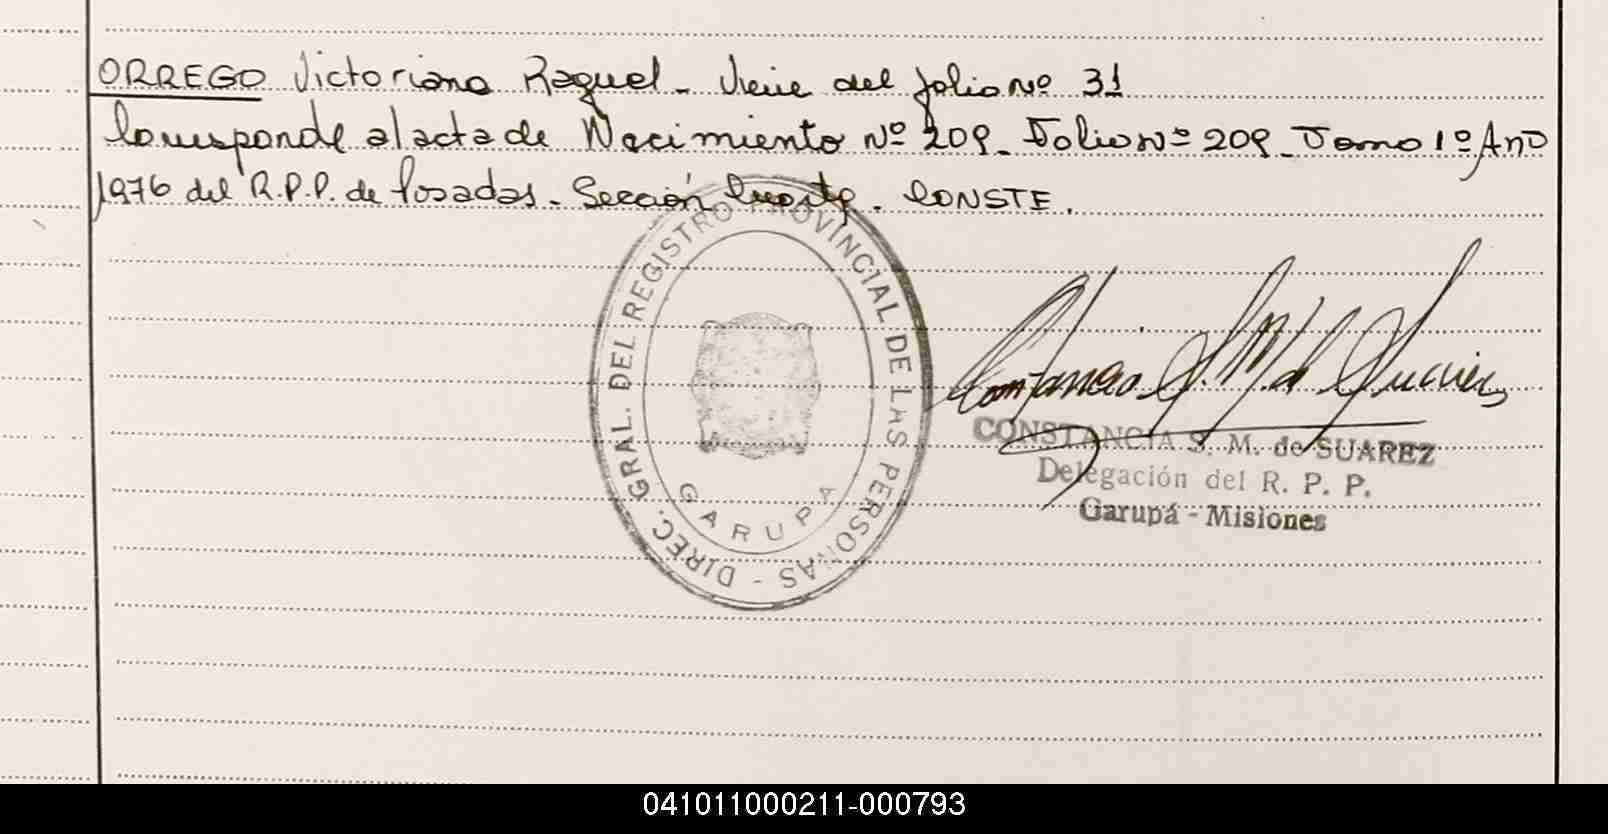 ORREGO Victoriana Raquel - Viene del folio Nº 31
Corresponde al acta de Nacimiento Nº 209 - Folio Nº 209 - Tomo 1º Año
1976 del R.P.P. de Posadas - Sección Cuarta - CONSTE.
DIREC. GRAL. DEL REGISTRO PROVINCIAL DE LAS PERSONAS -
GARUPA
CONSTANCIA S. M. de SUAREZ
Delegación del R. P. P.
Garupá - Misiones
041011000211-000793